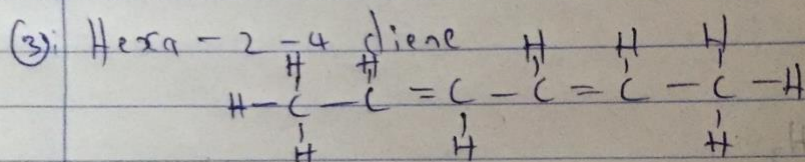 (3): Hexa - 2 - 4 diene
H H H H H
H - C - C = C - C = C - C - H
H H H